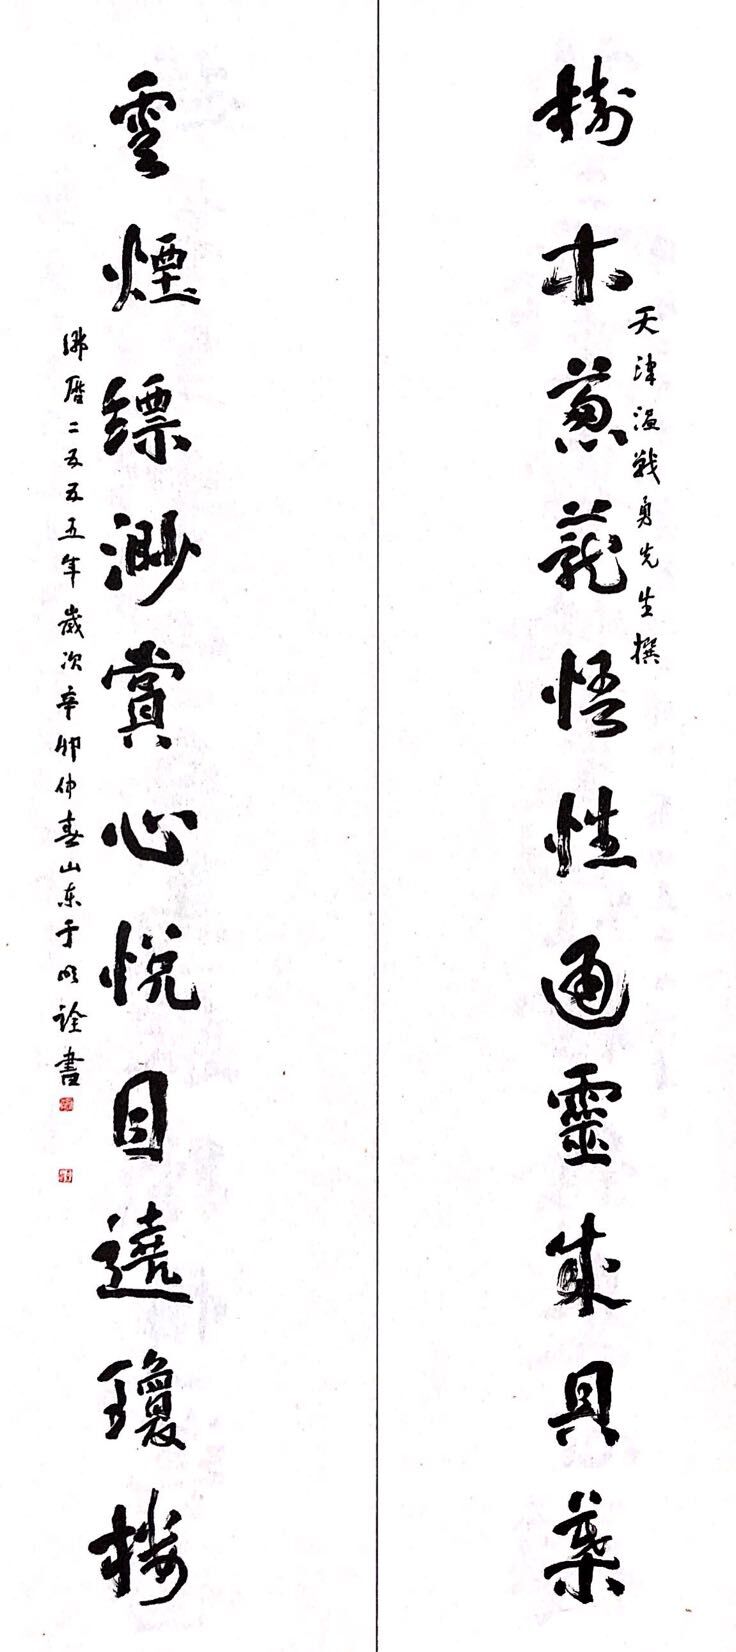 樹木蔥蘢悟性通靈成具葉
天津温戰勇先生撰
雲煙縹渺賞心悅目遶瓊樓
佛曆二五五五年歲次辛卯仲春山东于明詮書